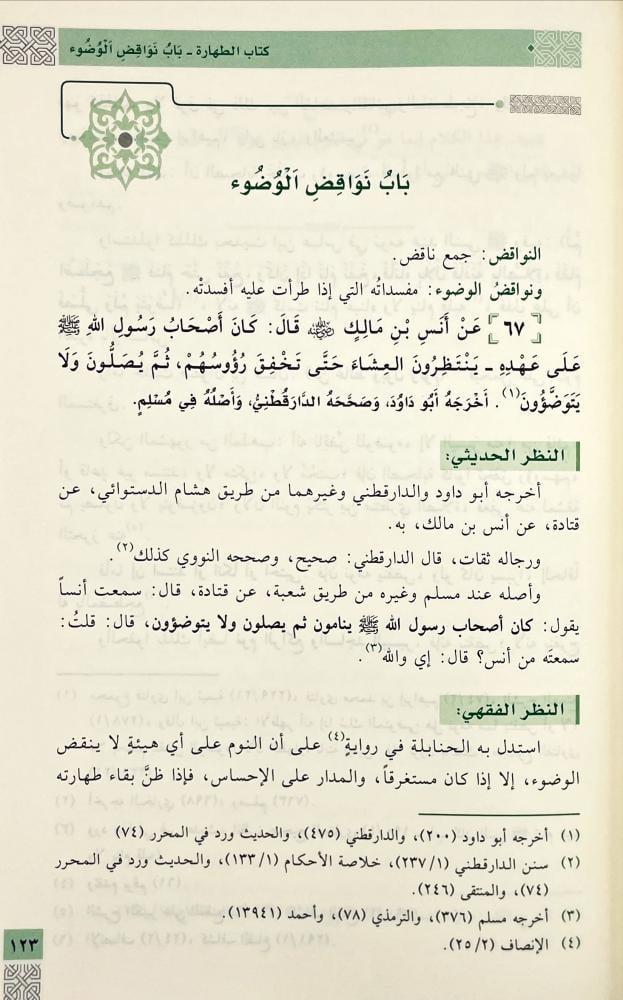 كتاب الطهارة - بَابُ نَوَاقِضِ اَلْوُضُوء
بَابُ نَوَاقِضِ اَلْوُضُوء
النواقض: جمع ناقض.
ونواقضُ الوضوء: مفسداتُه التي إذا طرأت عليه أفسدتْه.
[٦٧] عَنْ أَنَسِ بْنِ مَالِكٍ رضي الله عنه قَالَ: كَانَ أَصْحَابُ رَسُولِ اللهِ ﷺ
عَلَى عَهْدِهِ - يَنْتَظِرُونَ العِشَاءَ حَتَّى تَخْفِقَ رُؤُوسُهُمْ، ثُمَّ يُصَلُّونَ وَلَا
يَتَوَضَّؤُونَ(١). أَخْرَجَهُ أَبُو دَاوُدَ، وَصَحَّحَهُ الدَّارَقُطْنِيُّ، وَأَصْلُهُ فِي مُسْلِمٍ.
النظر الحديثي:
أخرجه أبو داود والدارقطني وغيرهما من طريق هشام الدستوائي، عن
قتادة، عن أنس بن مالك، به.
ورجاله ثقات، قال الدارقطني: صحيح، وصححه النووي كذلك(٢).
وأصله عند مسلم وغيره من طريق شعبة، عن قتادة، قال: سمعت أنساً
يقول: كان أصحاب رسول الله ﷺ ينامون ثم يصلون ولا يتوضؤون، قال: قلتُ:
سمعتَه من أنس؟ قال: إي والله(٣).
النظر الفقهي:
استدل به الحنابلة في روايةٍ(٤) على أن النوم على أي هيئةٍ لا ينقض
الوضوء، إلا إذا كان مستغرقاً، والمدار على الإحساس، فإذا ظنَّ بقاء طهارته
(١) أخرجه أبو داود (٢٠٠)، والدارقطني (٤٧٥)، والحديث ورد في المحرر (٧٤)
(٢) سنن الدارقطني (١/٢٣٧)، خلاصة الأحكام (١/١٣٣)، والحديث ورد في المحرر
(٧٤)، والمنتقى (٢٤٦).
(٣) أخرجه مسلم (٣٧٦)، والترمذي (٧٨)، وأحمد (١٣٩٤١).
(٤) الإنصاف (٢/٢٥).
١٢٣